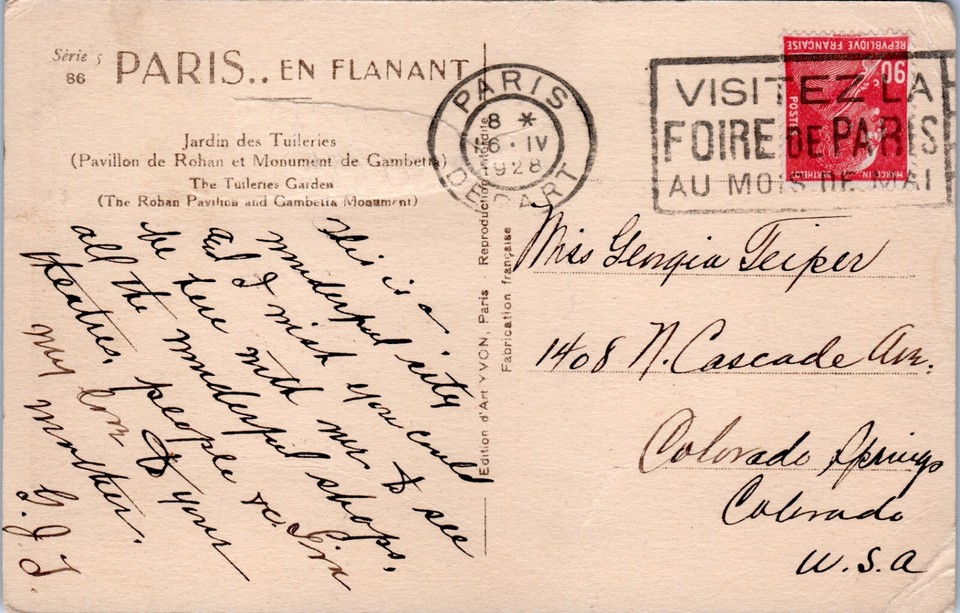 Série 5
86
PARIS.. EN FLANANT
Jardin des Tuileries
(Pavillon de Rohan et Monument de Gambetta)
The Tuileries Garden
(The Rohan Pavilion and Gambetta Monument)
This is a
wonderful city
and I wish you could
be here with me to see
all the wonderful shops,
theatres, people &c. Give
my love to your
mother.
G.J.T.
Edition d'Art YVON, Paris Reproduction interdite
Fabrication française
PARIS
8 *
16 · IV
1928
DEPART
VISITEZ LA
FOIRE DE PARIS
AU MOIS DE MAI
REPVBLIQVE FRANÇAISE
90
POSTES
MARCELIN BERTHELOT
Miss Georgia Teiper
1408 N. Cascade Ave.
Colorado Springs
Colorado
U.S.A